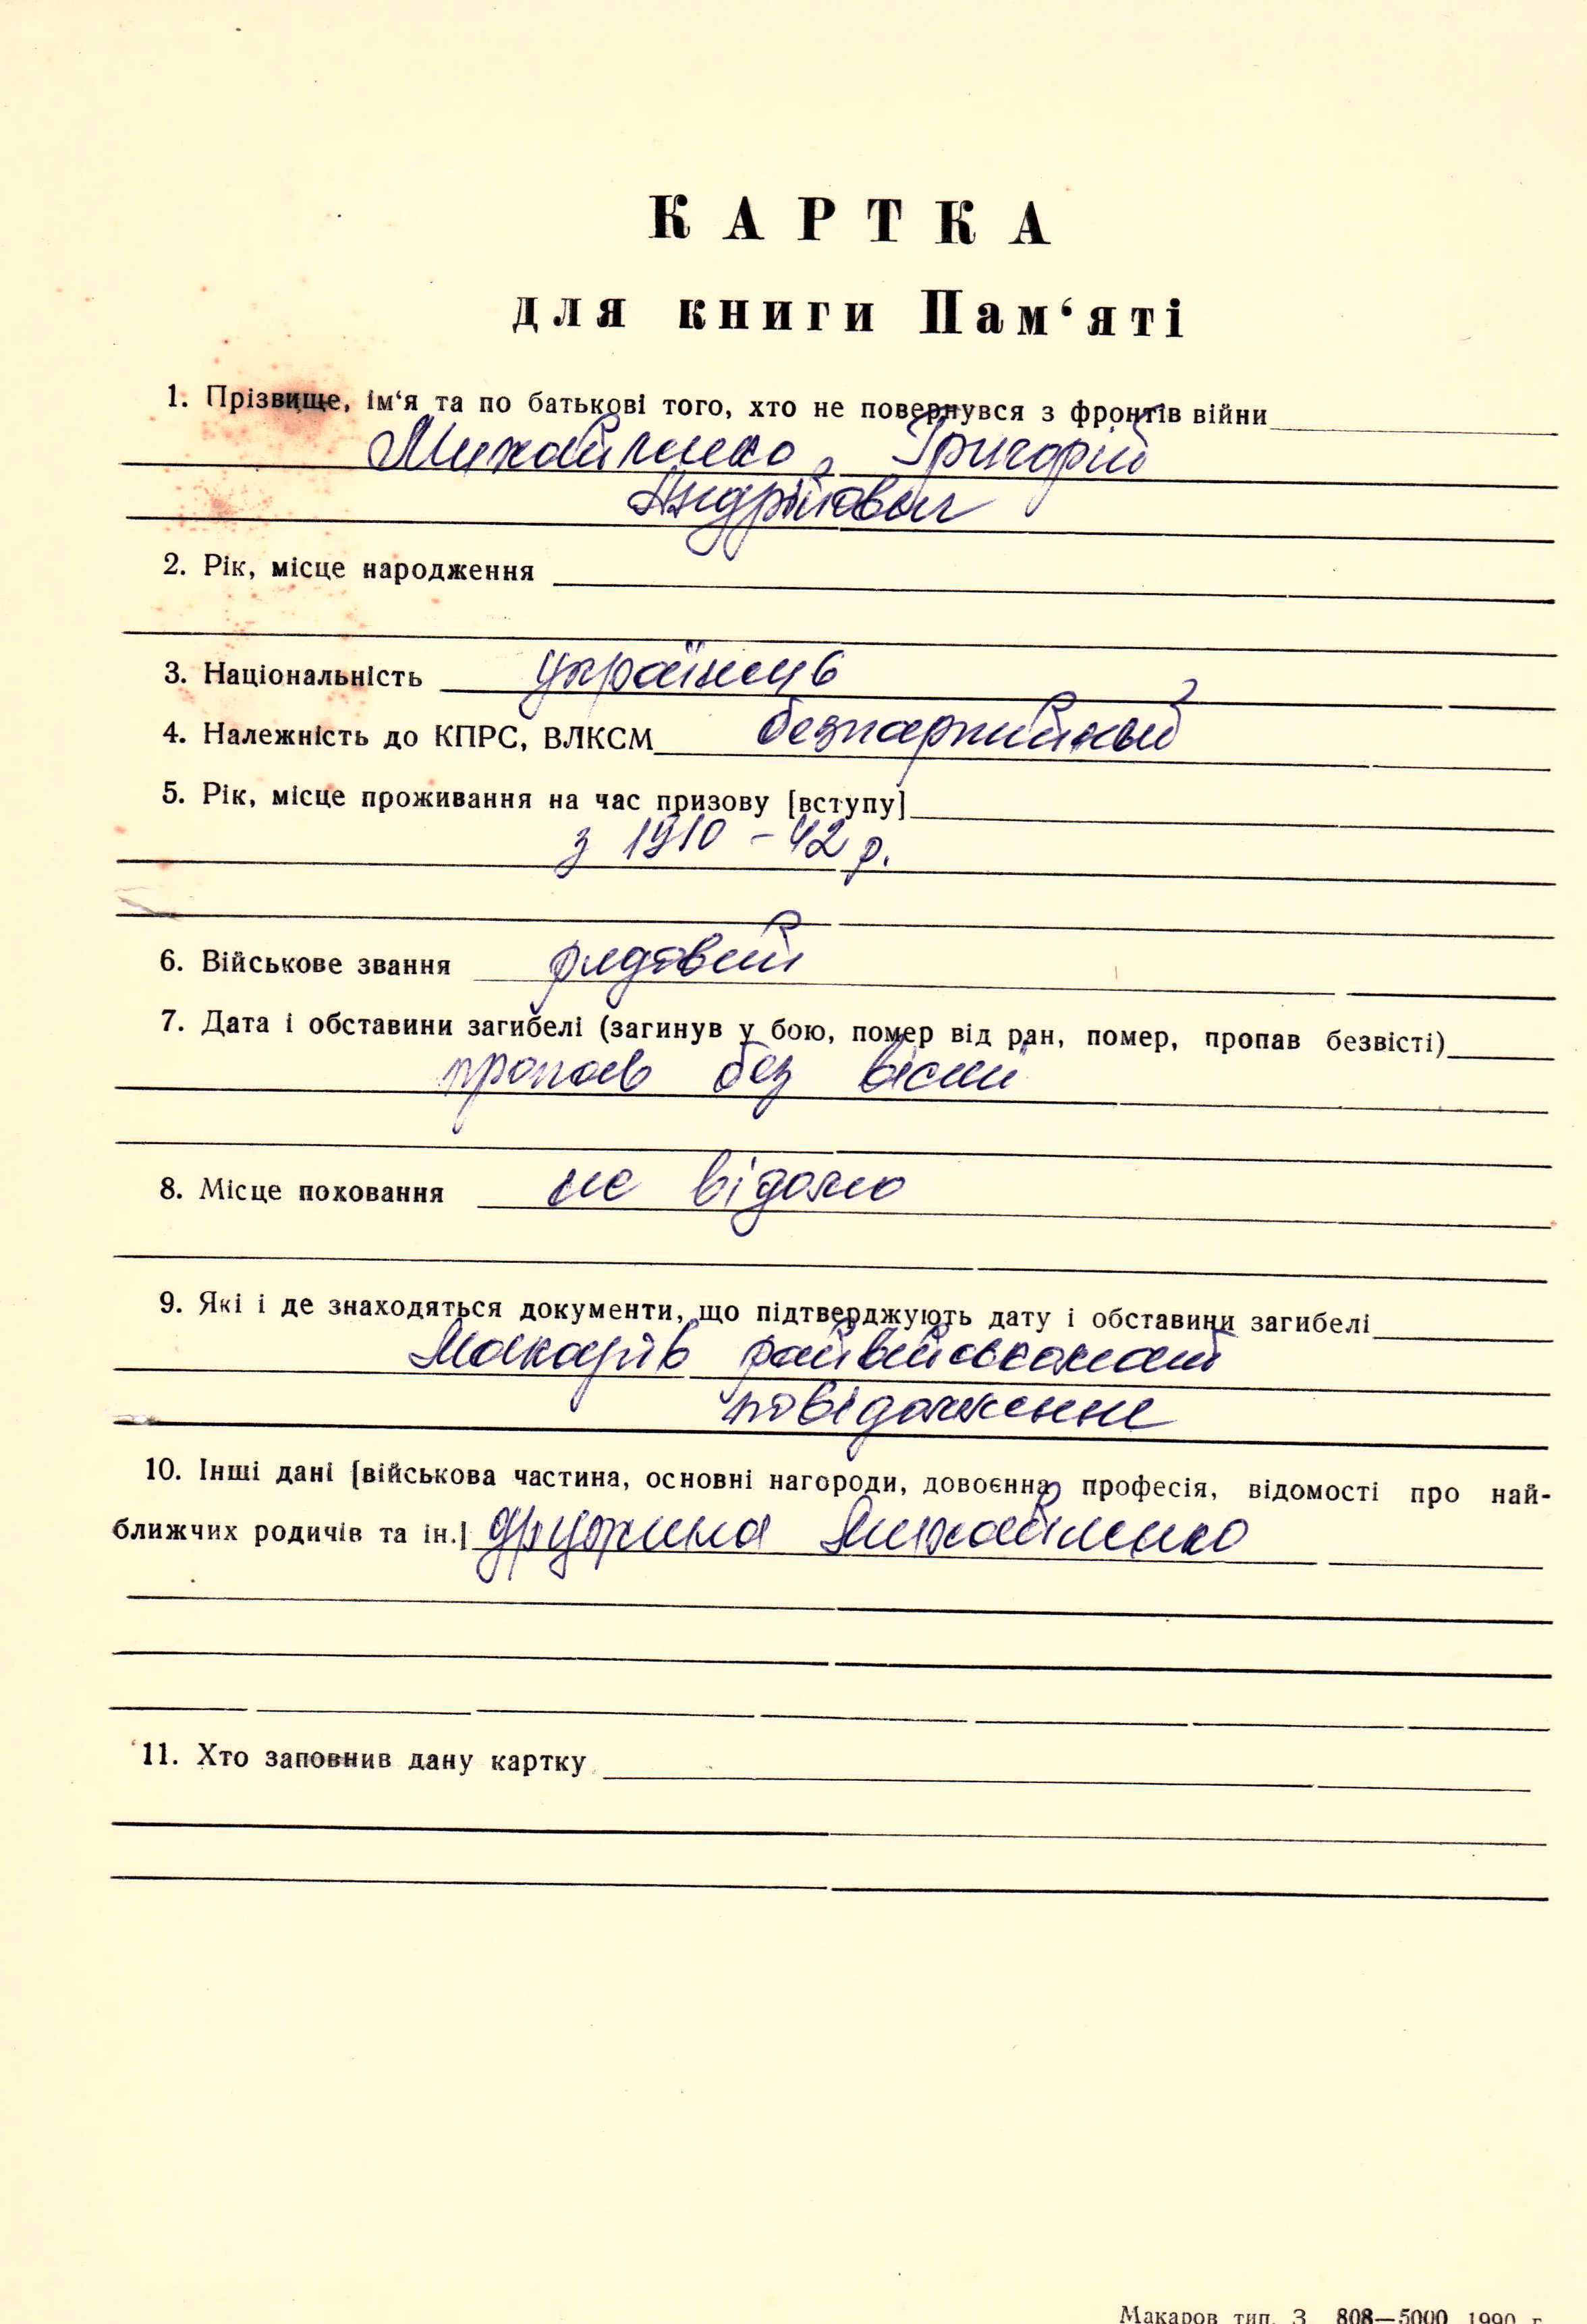 КАРТКА
для книги Пам‘яті
1. Прізвище, ім‘я та по батькові того, хто не повернувся з фронтів війни
Михайленко, Григорій
Андрійович
2. Рік, місце народження
3. Національність українць
4. Належність до КПРС, ВЛКСМ безпартийный
5. Рік, місце проживання на час призову [вступу]
з 1910 – 42 р.
6. Військове звання рядовий
7. Дата і обставини загибелі (загинув у бою, помер від ран, помер, пропав безвісті)
пропав без вісті
8. Місце поховання не відомо
9. Які і де знаходяться документи, що підтверджують дату і обставини загибелі
Макарів райвійськомат
повідомлення
10. Інші дані [військова частина, основні нагороди, довоєнна професія, відомості про най-
ближчих родичів та ін.] дружина Михайленко
11. Хто заповнив дану картку
Макаров тип. З. 808—5000 1990 г.